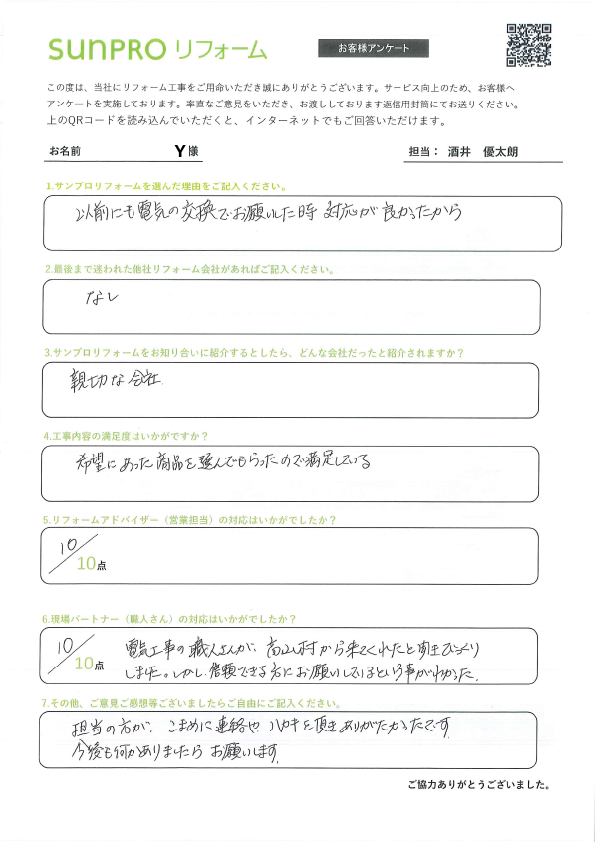 SUNPRO リフォーム
お客様アンケート
この度は、当社にリフォーム工事をご用命いただき誠にありがとうございます。サービス向上のため、お客様へ
アンケートを実施しております。率直なご意見をいただき、お渡ししております返信用封筒にてお送りください。
上のQRコードを読み込んでいただくと、インターネットでもご回答いただけます。
お名前 Y様 担当： 酒井 優太朗
1.サンプロリフォームを選んだ理由をご記入ください。
以前にも電気の交換でお願いした時 対応が良かったから
2.最後まで迷われた他社リフォーム会社があればご記入ください。
なし
3.サンプロリフォームをお知り合いに紹介するとしたら、どんな会社だったと紹介されますか？
親切な会社
4.工事内容の満足度はいかがですか？
希望にあった商品を選んでもらったので満足している
5.リフォームアドバイザー（営業担当）の対応はいかがでしたか？
10/10点
6.現場パートナー（職人さん）の対応はいかがでしたか？
10/10点
電気工事の職人さんが、高山村から来てくれたと聞きびっくり
しました。しかし、信頼できる方にお願いしているという事がわかった。
7.その他、ご意見ご感想等ございましたらご自由にご記入ください。
担当の方が、こまめに連絡や ハガキを頂きありがたかったです。
今後も何かありましたら お願いします。
ご協力ありがとうございました。